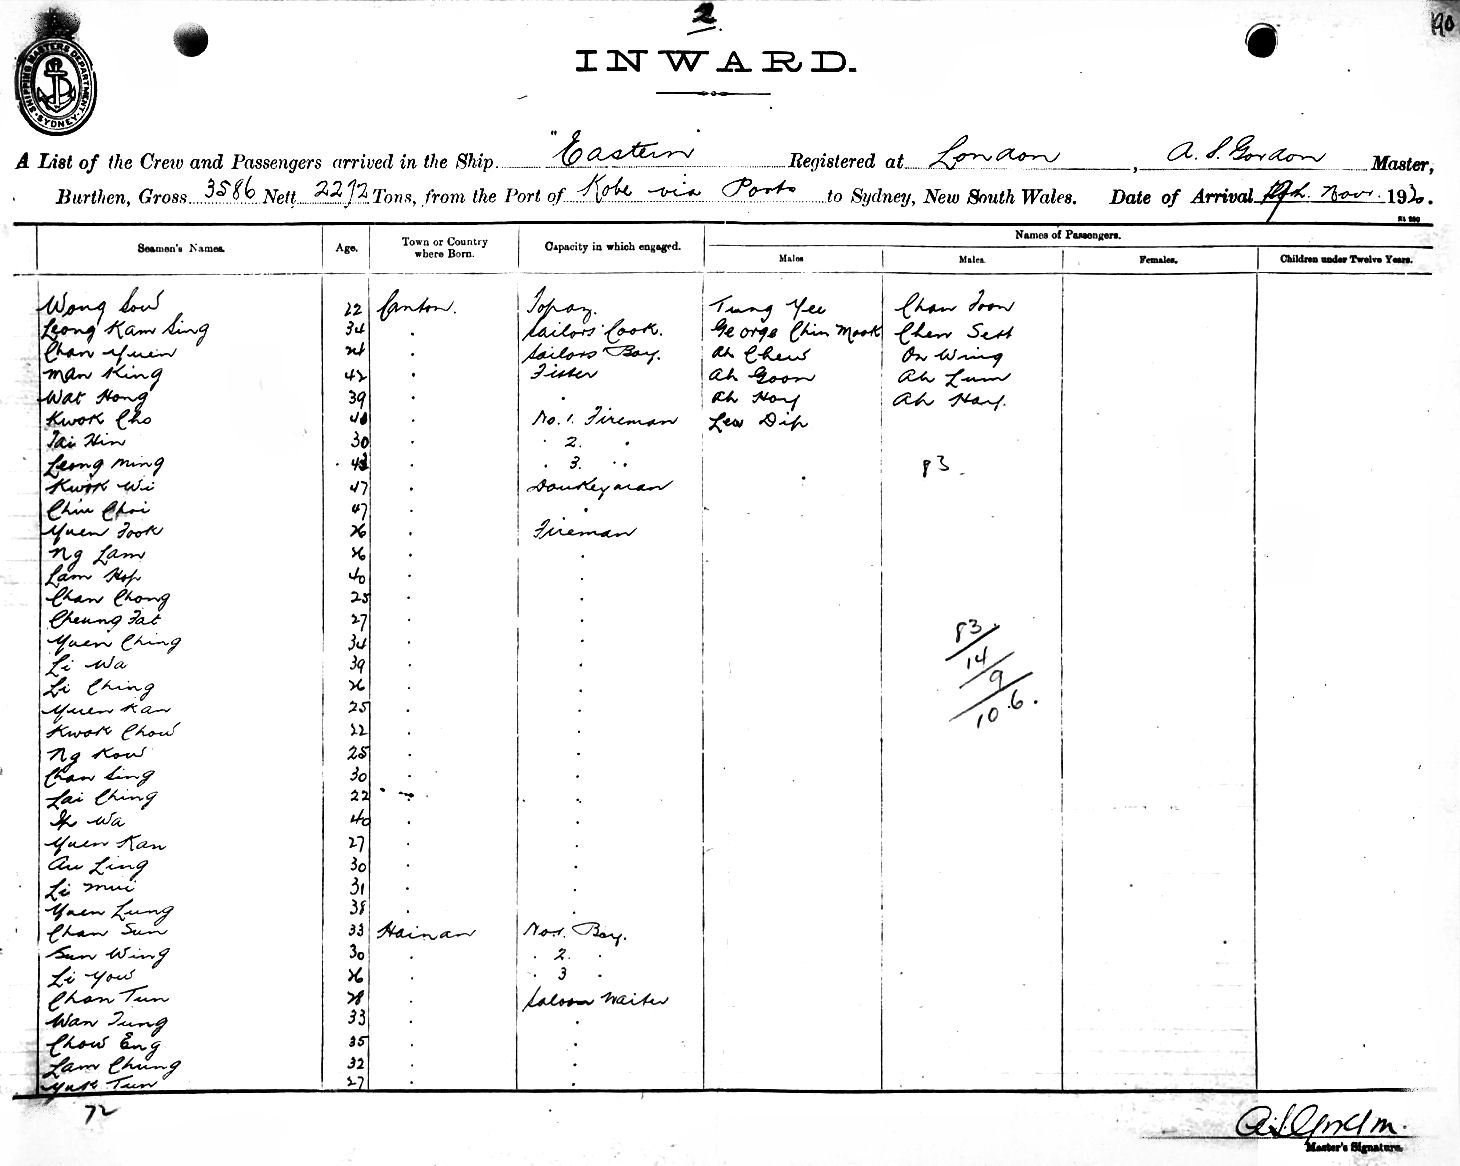 2
190
INWARD.
SHIPPING MASTERS DEPARTMENT SYDNEY
A List of the Crew and Passengers arrived in the Ship "Eastern" Registered at London, A. S. Gordon Master,
Burthen, Gross 3586 Nett 2272 Tons, from the Port of Kobe via Ports to Sydney, New South Wales. Date of Arrival Nov. 192
Seamen's Names. Age. Town or Country where Born. Capacity in which engaged. Names of Passengers.
Males Males. Females. Children under Twelve Years.
Wong Sow 22 Canton. Topaz. Tung Yee Chan Foon
Leong Kam Sing 34 . Sailors' Cook. George Chin Mook Chen Sett
Chan Yuen 24 . Sailors Boy. Ah Chew On Wing
Man King 42 . Fitter Ah Goon Ah Lum
Wat Hong 39 . . Ah Hoy Ah Hay.
Kwok Cho . No. 1. Fireman Lew Dip
Tai Hin 30 . . 2. .
Leong Ming . . 3. . . 83.
Kwok Wi 47 . Donkeyman
Chiu Choi 47 . .
Yuen Fook 26 . Fireman
Ng Lam 26 . .
Lam Hop 40 . .
Chan Chong 25 . .
Cheung Fat 27 . . 83.
Yuen Ching 34 . .
Li Wa 39 . . 14
Li Ching 26 . . 9
Yuen Kan 25 . . 106.
Kwok Chow 22 . .
Ng Kow 25 . .
Chan Sing 30 . .
Lai Ching 22 . .
Ip Wa 40 . .
Yuen Kan 27 . .
Au Ling 30 . .
Li Mui 31 . .
Yuen Lung 38 . .
Chan Sun 33 Hainan No 1. Boy.
Sun Wing 30 . . 2. .
Li Yow 26 . . 3 .
Chan Tun 28 . Saloon Waiter
Wan Tung 33 . .
Chow Eng 35 . .
Lam Chung 32 . .
Yuk Tun 27 . .
72
A. S. Gordon.
Master's Signature.